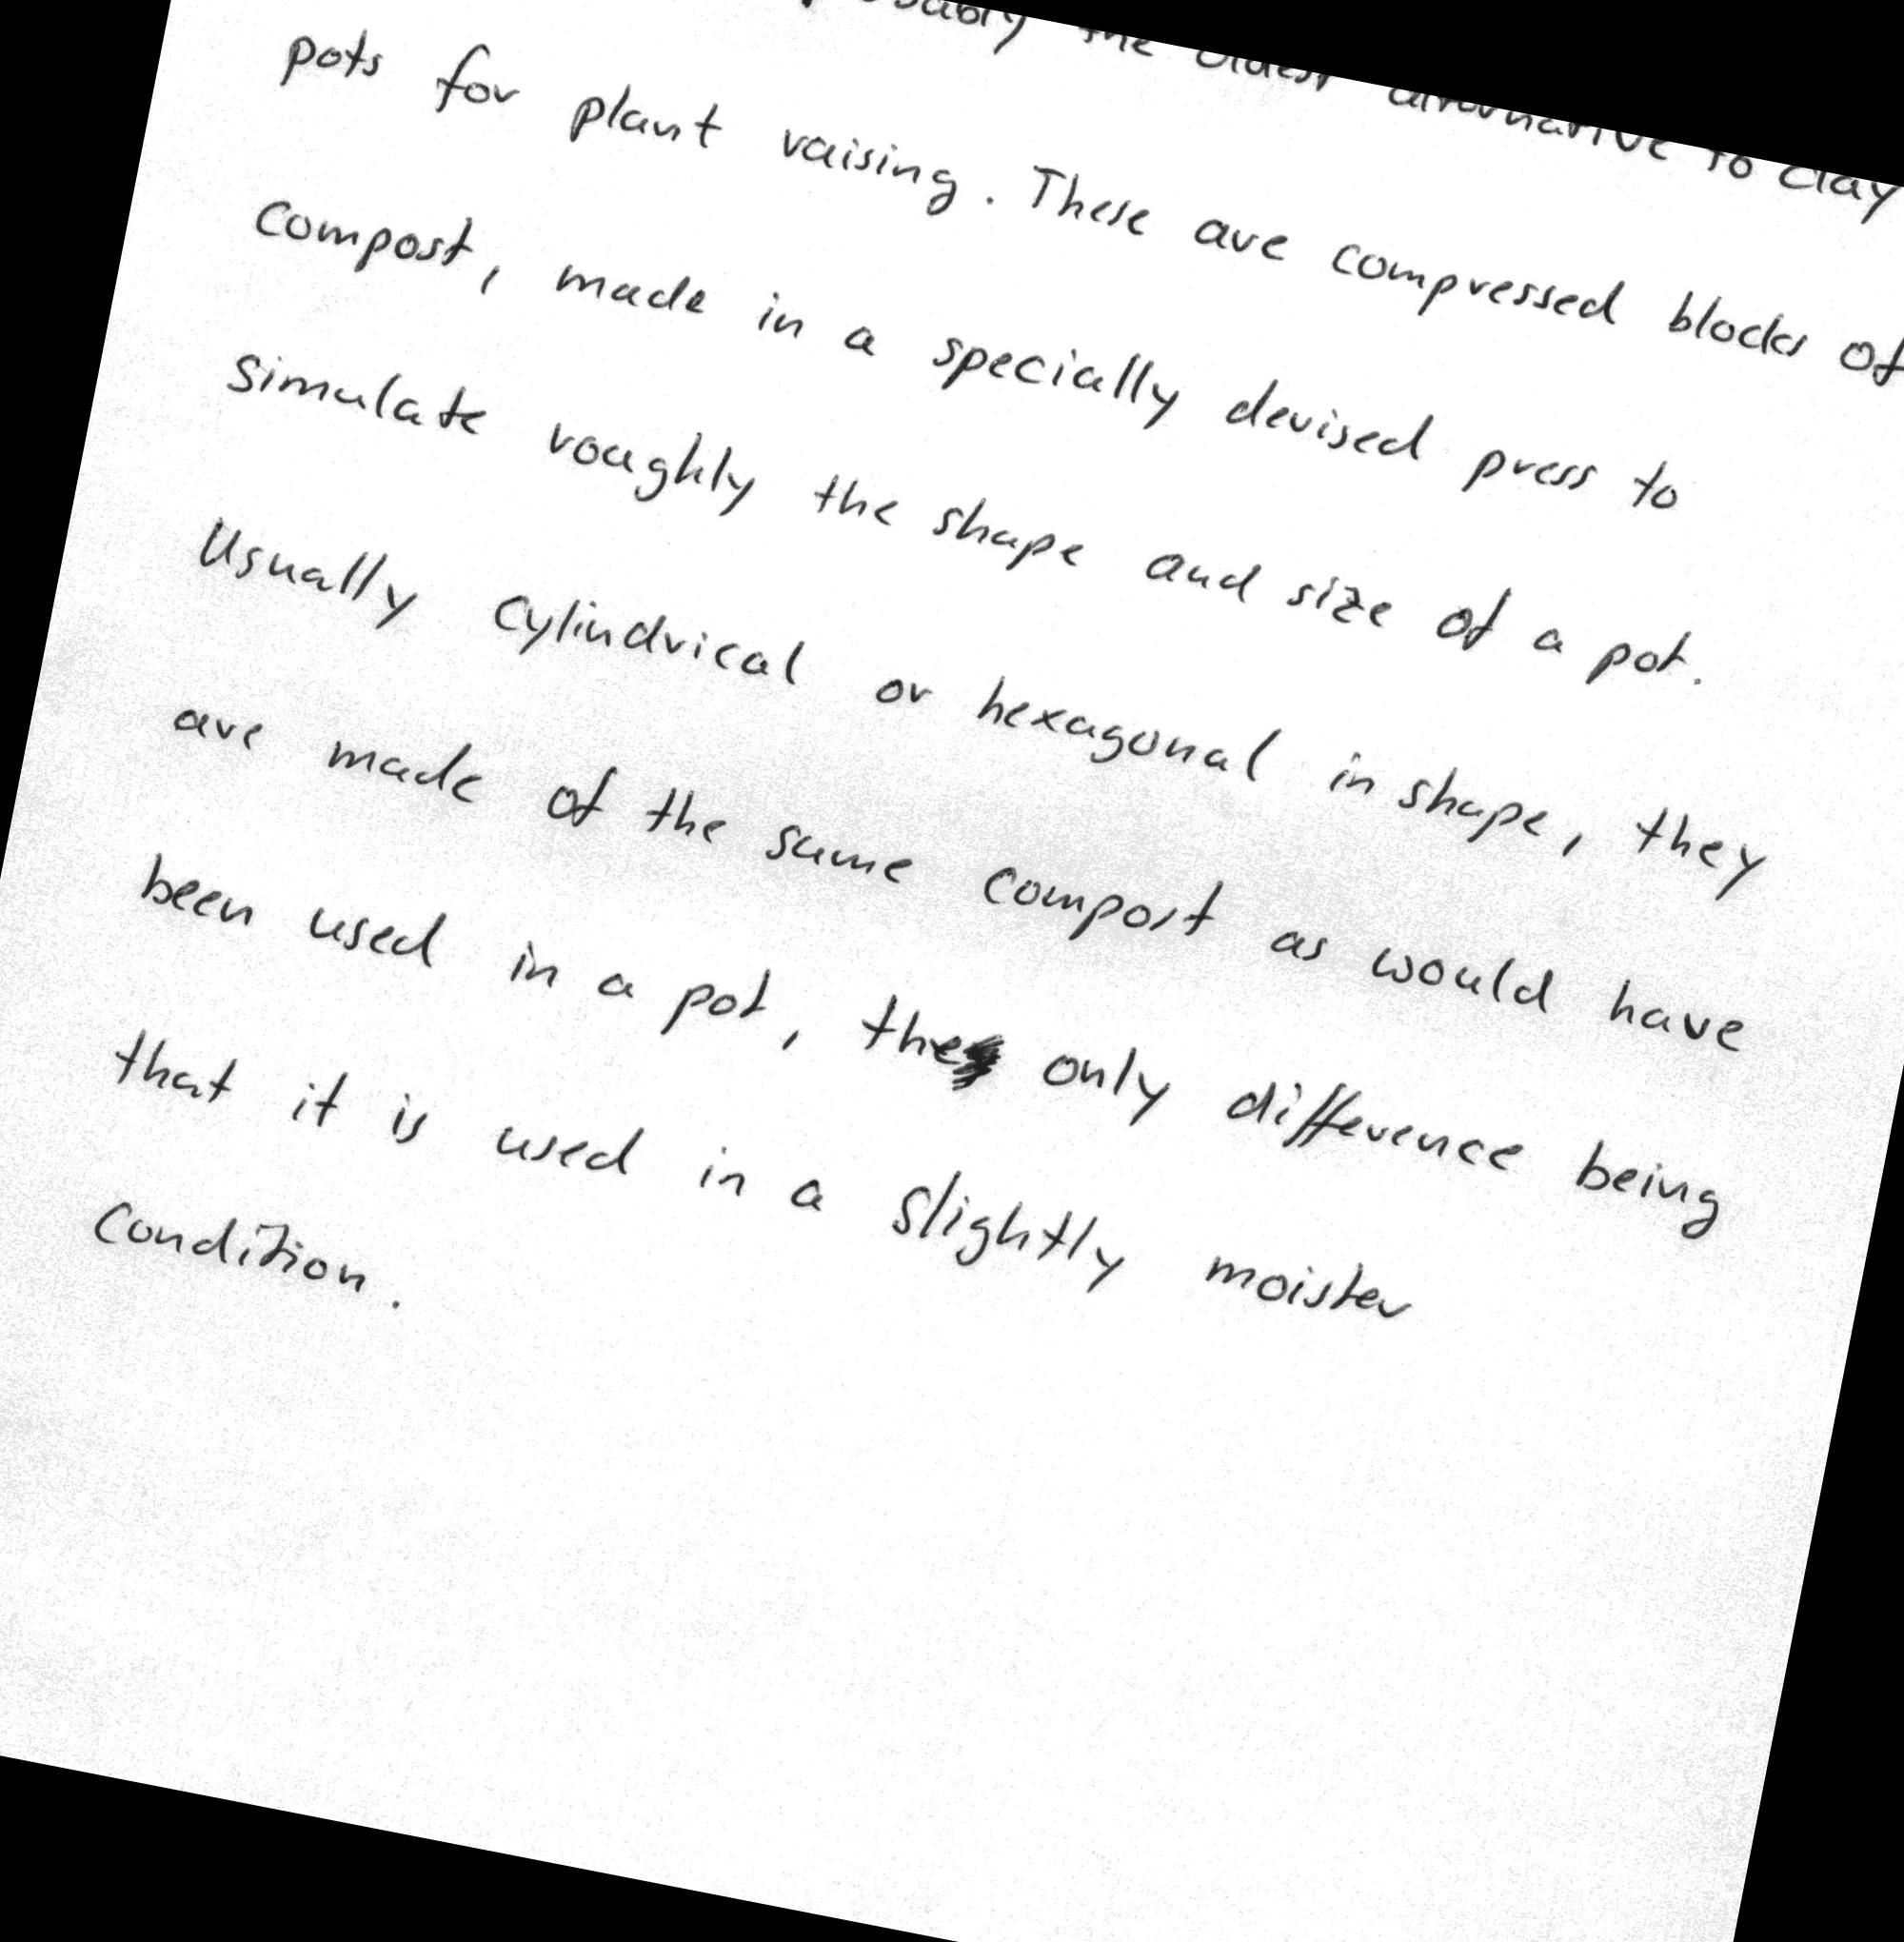 probably the oldest alternative to clay
pots for plant raising. These are compressed blocks of
compost, made in a specially devised press to
simulate roughly the shape and size of a pot.
Usually cylindrical or hexagonal in shape, they
are made of the same compost as would have
been used in a pot, the only difference being
that it is used in a slightly moister
condition.